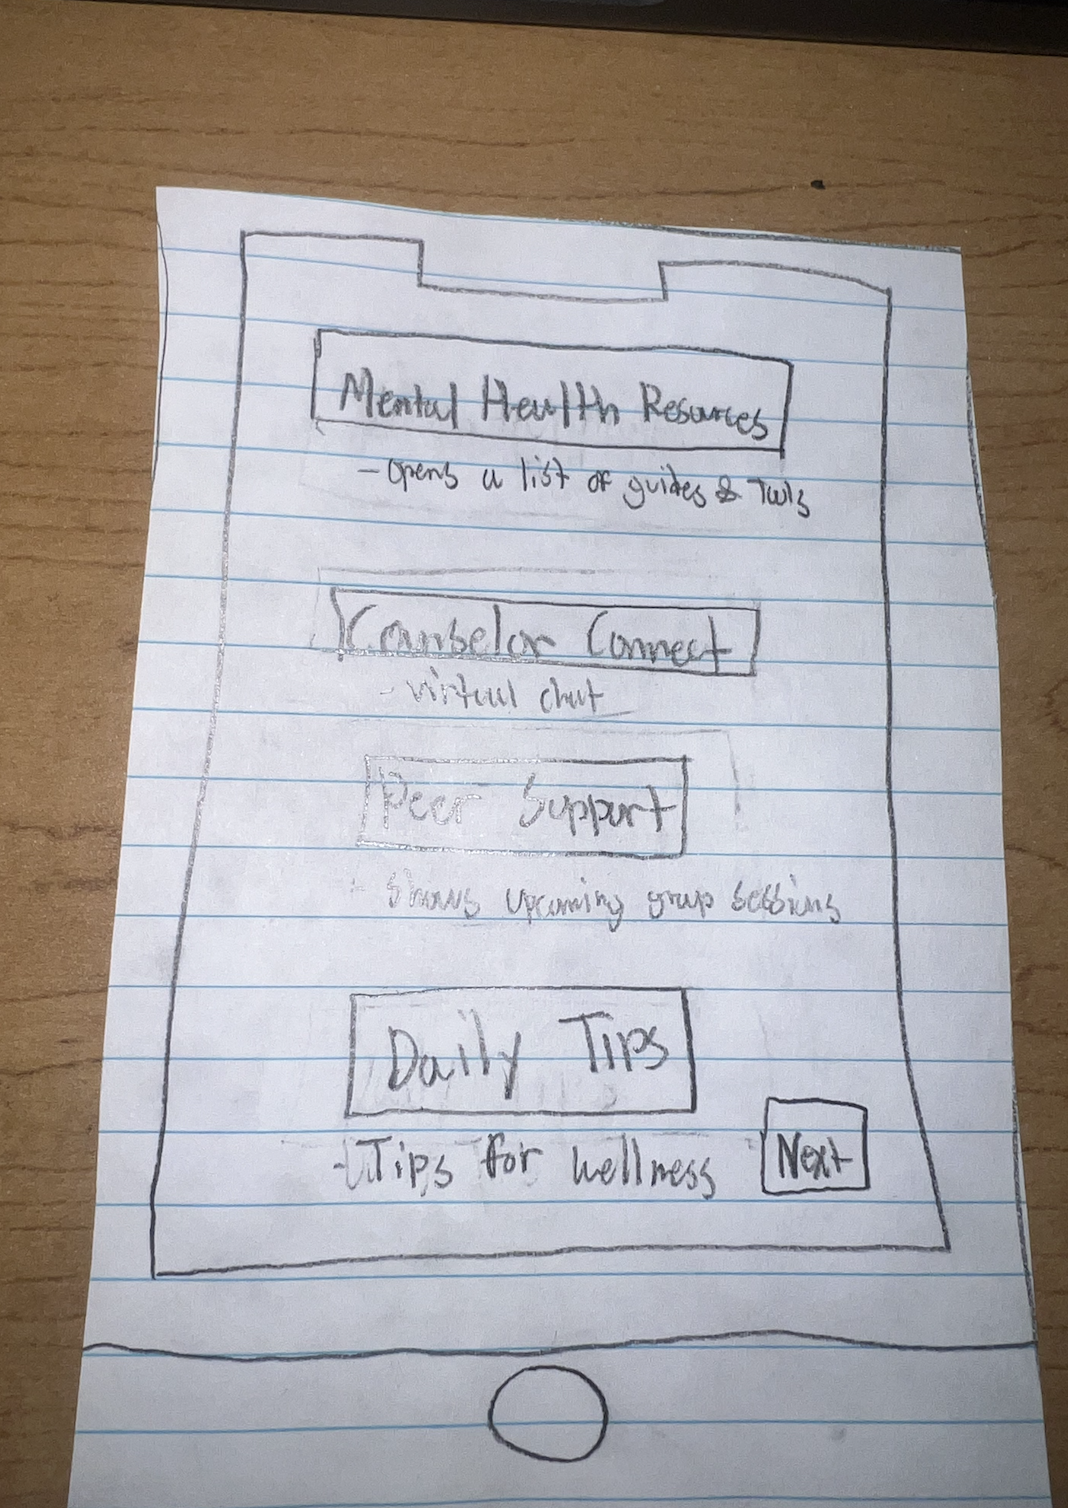 Mental Health Resources
- opens a list of guides & Tools
Counselor Connect
- virtual chat
Peer Support
- shows upcoming group sessions
Daily Tips
- Tips for wellness
Next